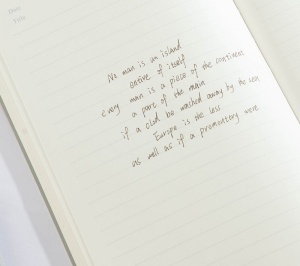 No man is an island
entire of itself
every man is a piece of the continent
a part of the main
if a clod be washed away by the sea
Europe is the less
as well as if a promontory were